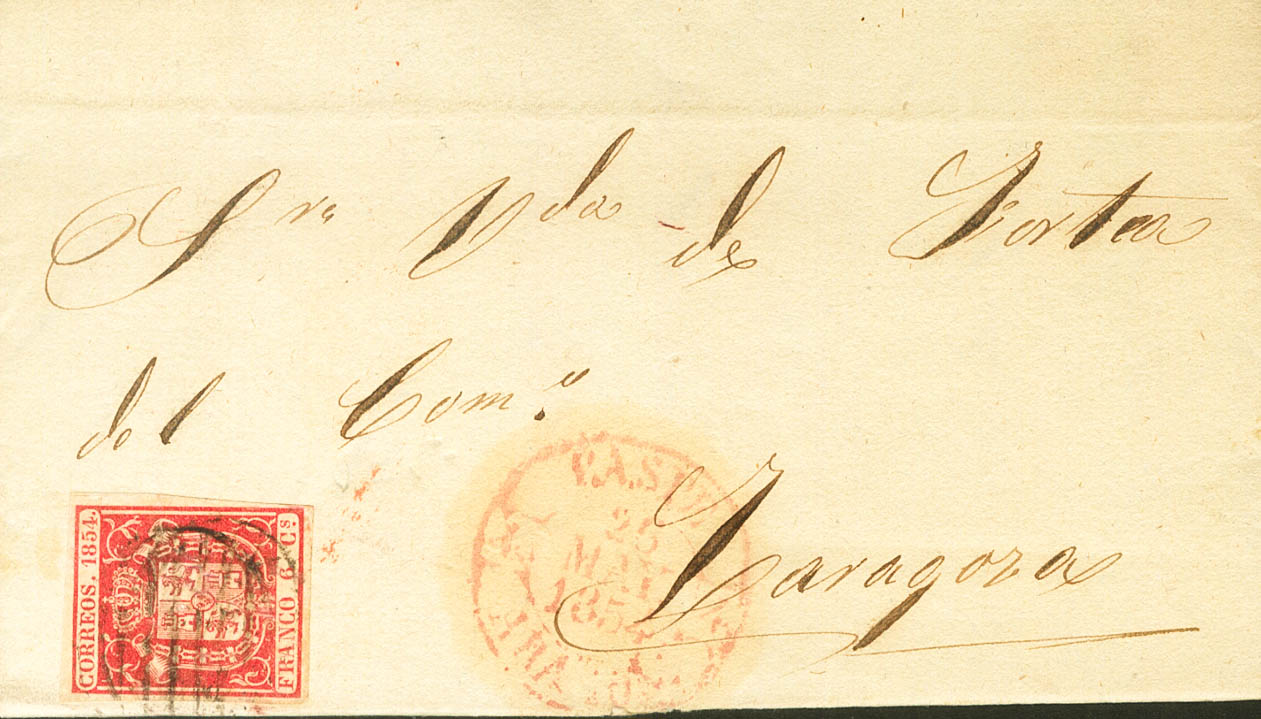 Sra Vda de Zortea
del Com.o
Zaragoza
CORREOS. 1854.
FRANCO. 6 Cs
26
185